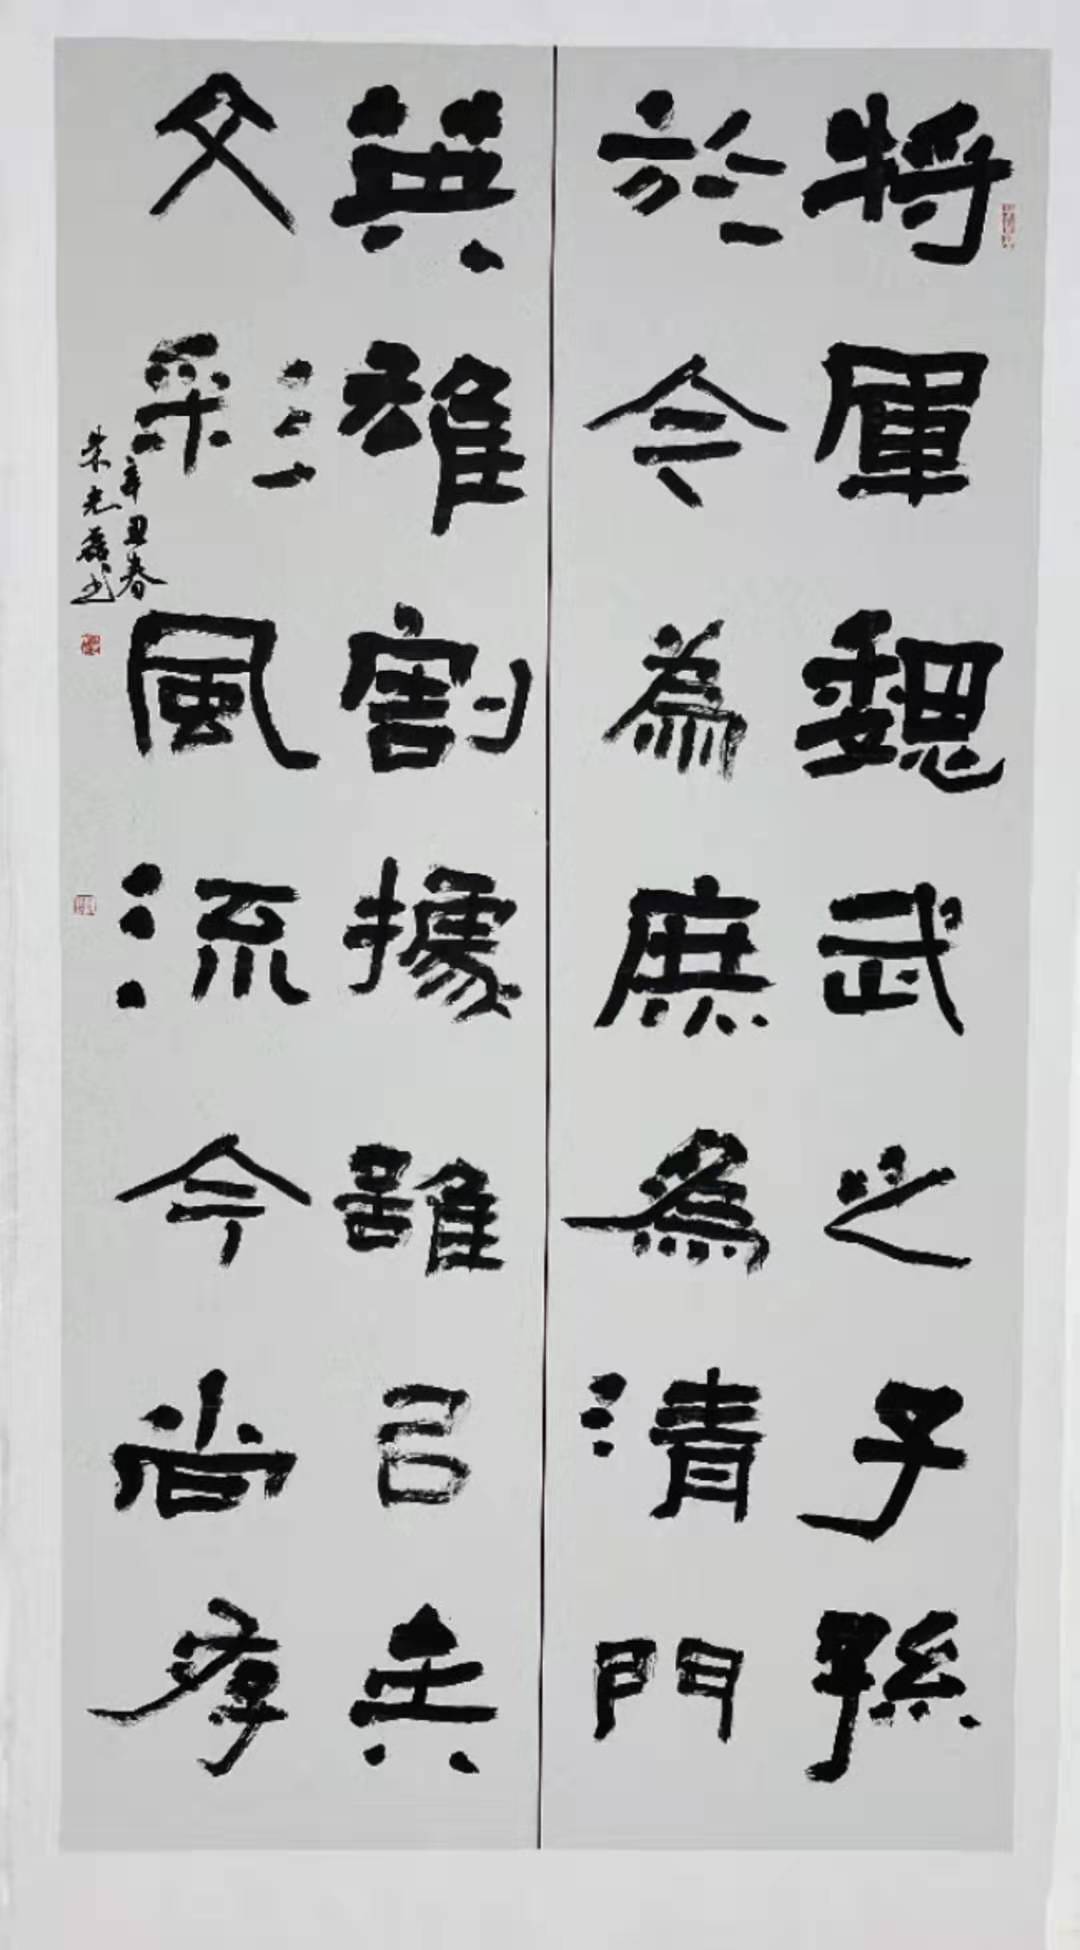 將軍魏武之子孫
於今為庶為清門
英雄割據雖已矣
文彩風流今尚存
辛丑春
朱光磊书